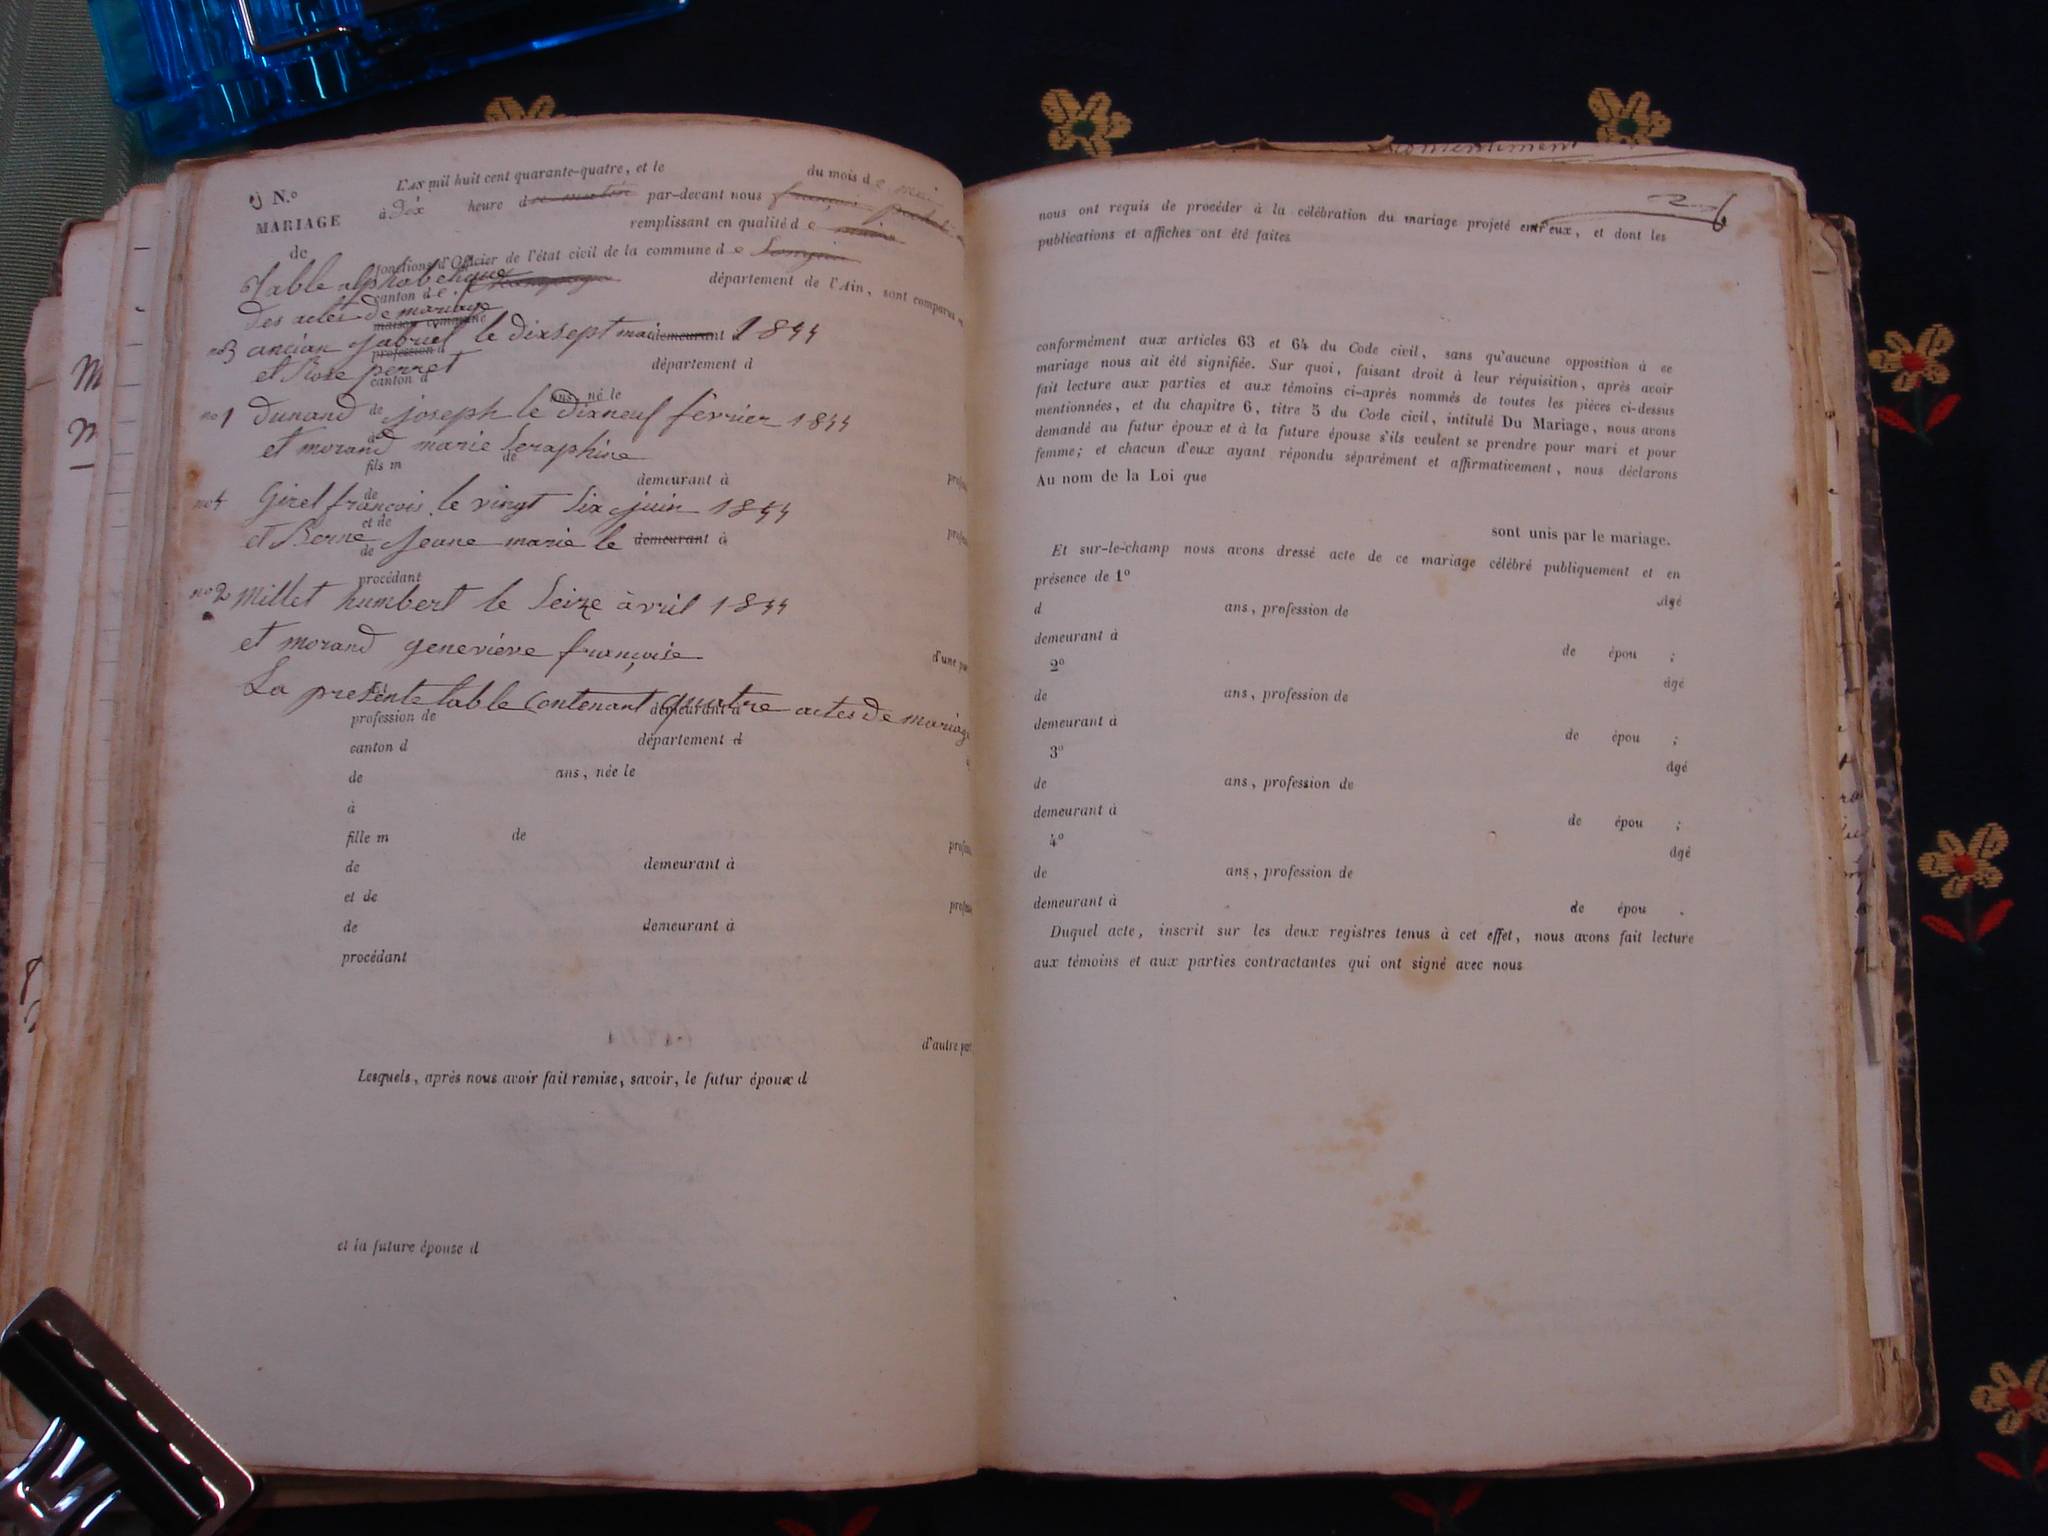 N.º
MARIAGE
de
L'AN mil huit cent quarante-quatre, et le du mois de mai
à dix heure du matin par-devant nous françois
remplissant en qualité de maire
fonctions d'Officier de l'état civil de la commune de
canton de département de l'Ain, sont comparus
Table alphabétique
Des actes de mariage
maison commune
no3 ancian gabriel le dixsept mai demeurant 1844
profession d
et Rose perret département d
canton d
ans, né le
no1 Dunand de joseph le dixneuf février 1844
et morand marie Seraphine
fils m de
demeurant à profes
no4 Girel françois le vingt Six juin 1844
de
et de
et Berne Jeane marie le demeurant à profes
de
procédant
no2 Millet humbert le Seize àvril 1844
et morand geneviéve françoise d'une par
La presente table Contenant quatre actes De mariage
profession de demeurant à
canton d département d
de ans, née le
à
fille m de profes
de demeurant à
et de profes
de demeurant à
procédant
d'autre par
Lesquels, après nous avoir fait remise, savoir, le futur époux d
et la future épouse d
consentiment
2 6
nous ont requis de procéder à la célébration du mariage projeté entr'eux, et dont les
publications et affiches ont été faites
conformément aux articles 63 et 64 du Code civil, sans qu'aucune opposition à ce
mariage nous ait été signifiée. Sur quoi, faisant droit à leur réquisition, après avoir
fait lecture aux parties et aux témoins ci-après nommés de toutes les pièces ci-dessus
mentionnées, et du chapitre 6, titre 5 du Code civil, intitulé Du Mariage, nous avons
demandé au futur époux et à la future épouse s'ils veulent se prendre pour mari et pour
femme; et chacun d'eux ayant répondu séparément et affirmativement, nous déclarons
Au nom de la Loi que
sont unis par le mariage.
Et sur-le-champ nous avons dressé acte de ce mariage célébré publiquement et en
présence de 1º âgé
d ans, profession de
demeurant à de épou ;
2º âgé
de ans, profession de
demeurant à de épou ;
3º âgé
de ans, profession de
demeurant à de épou ;
4º âgé
de ans, profession de
demeurant à de épou .
Duquel acte, inscrit sur les deux registres tenus à cet effet, nous avons fait lecture
aux témoins et aux parties contractantes qui ont signé avec nous